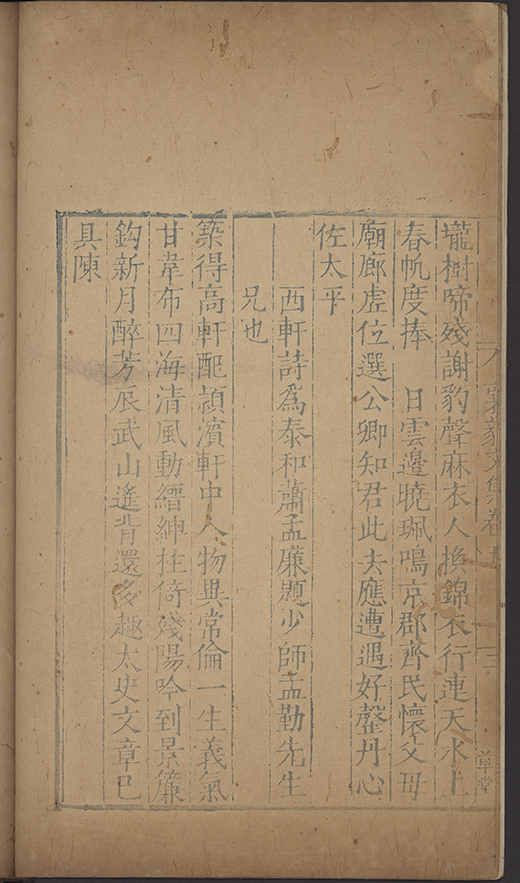 壠樹啼殘謝豹聲麻衣人換錦衣行連天水上
春帆度捧 日雲邊曉珮鳴京郡齊民懷父母
廟廊虛位選公卿知君此去應遭遇好罄丹心
佐太平
西軒詩為泰和蕭孟廉題少師孟勤先生
兄也
築得高軒配潁濱軒中人物異常倫一生義氣
甘韋布四海清風動縉紳柱倚殘陽吟到景簾
鈎新月醉芳辰武山遙背還多趣太史文章已
具陳